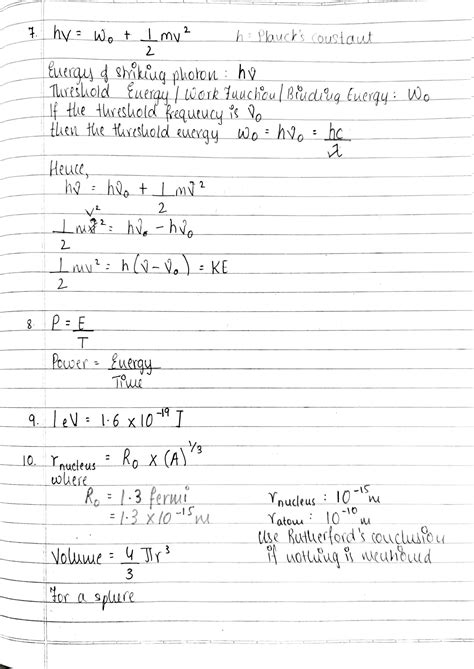 7. hν = W₀ + 1/2 mv² h = Planck's constant
Energy of striking photon : hν
Threshold Energy / Work Function / Binding Energy : W₀
If the threshold frequency is ν₀
then the threshold energy W₀ = hν₀ = hc/λ
Hence,
hν = hν₀ + 1/2 mv²
1/2 mv² = hν₀ - hν₀
1/2 mv² = h(ν - ν₀) = KE
8. P = E/T
Power = Energy/Time
9. 1eV = 1.6 x 10⁻¹⁹ J
10. r nucleus = R₀ x (A)^1/3
where
R₀ = 1.3 fermi
= 1.3 x 10⁻¹⁵ m
r nucleus : 10⁻¹⁵ m
r atom : 10⁻¹⁰ m
Use Rutherford's conclusion
if nothing is mentioned
Volume = 4/3 πr³
For a sphere